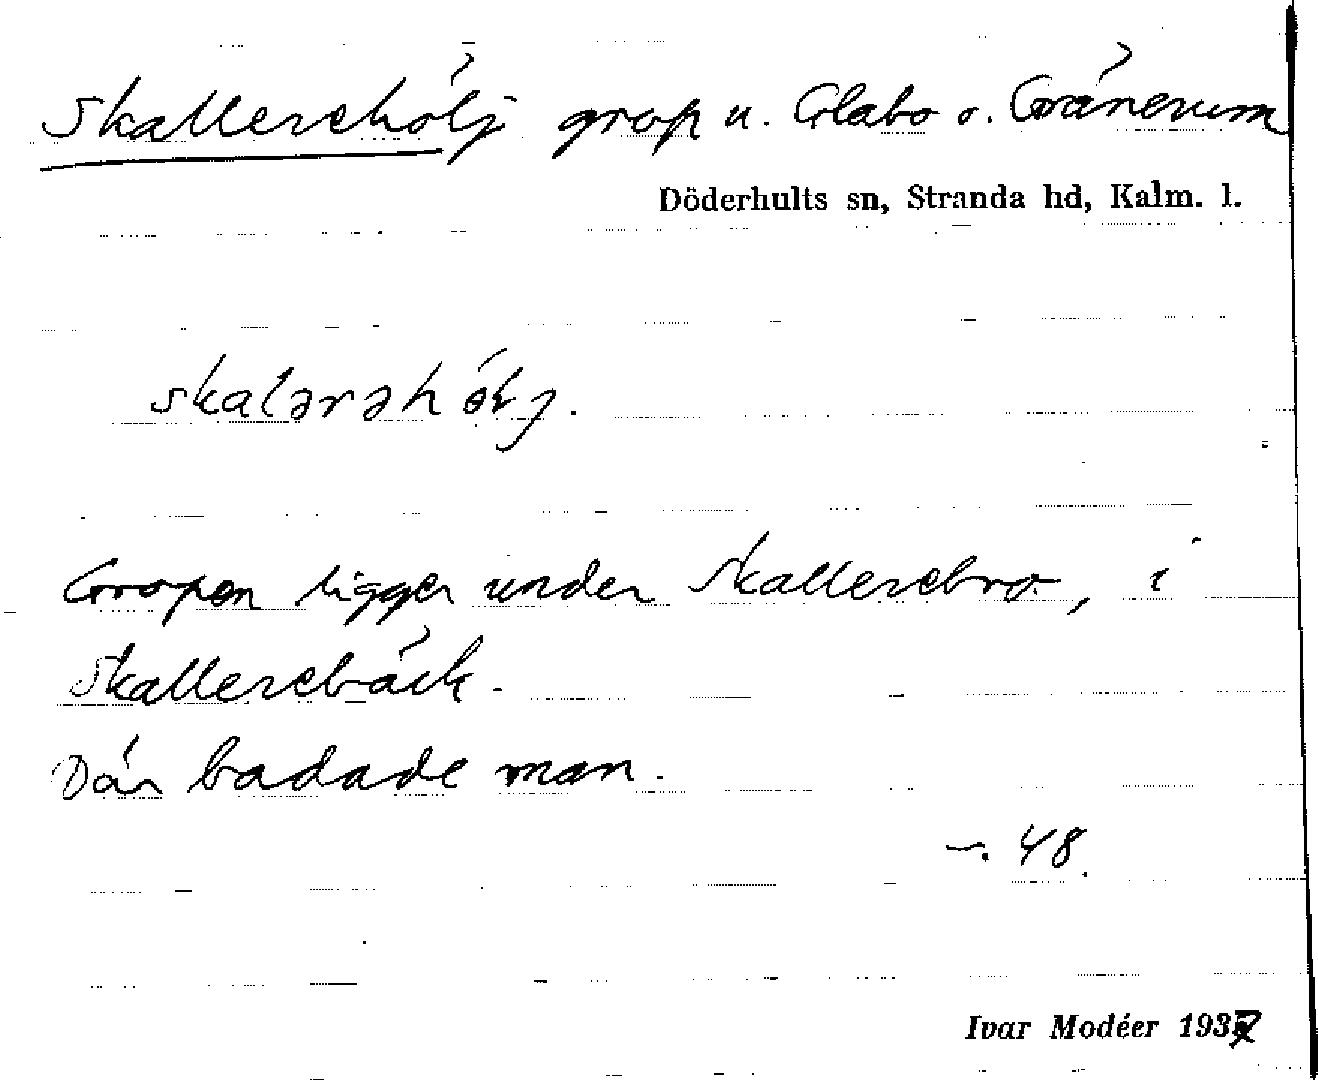 Skallerehölj grop u. Glabo o. Gränerum
Döderhults sn, Stranda hd, Kalm. l.
skalərəhölj.
Gropen ligger under Skallerebro, i
Skallerebäck.
Där badade man.
—. 48.
Ivar Modéer 1937